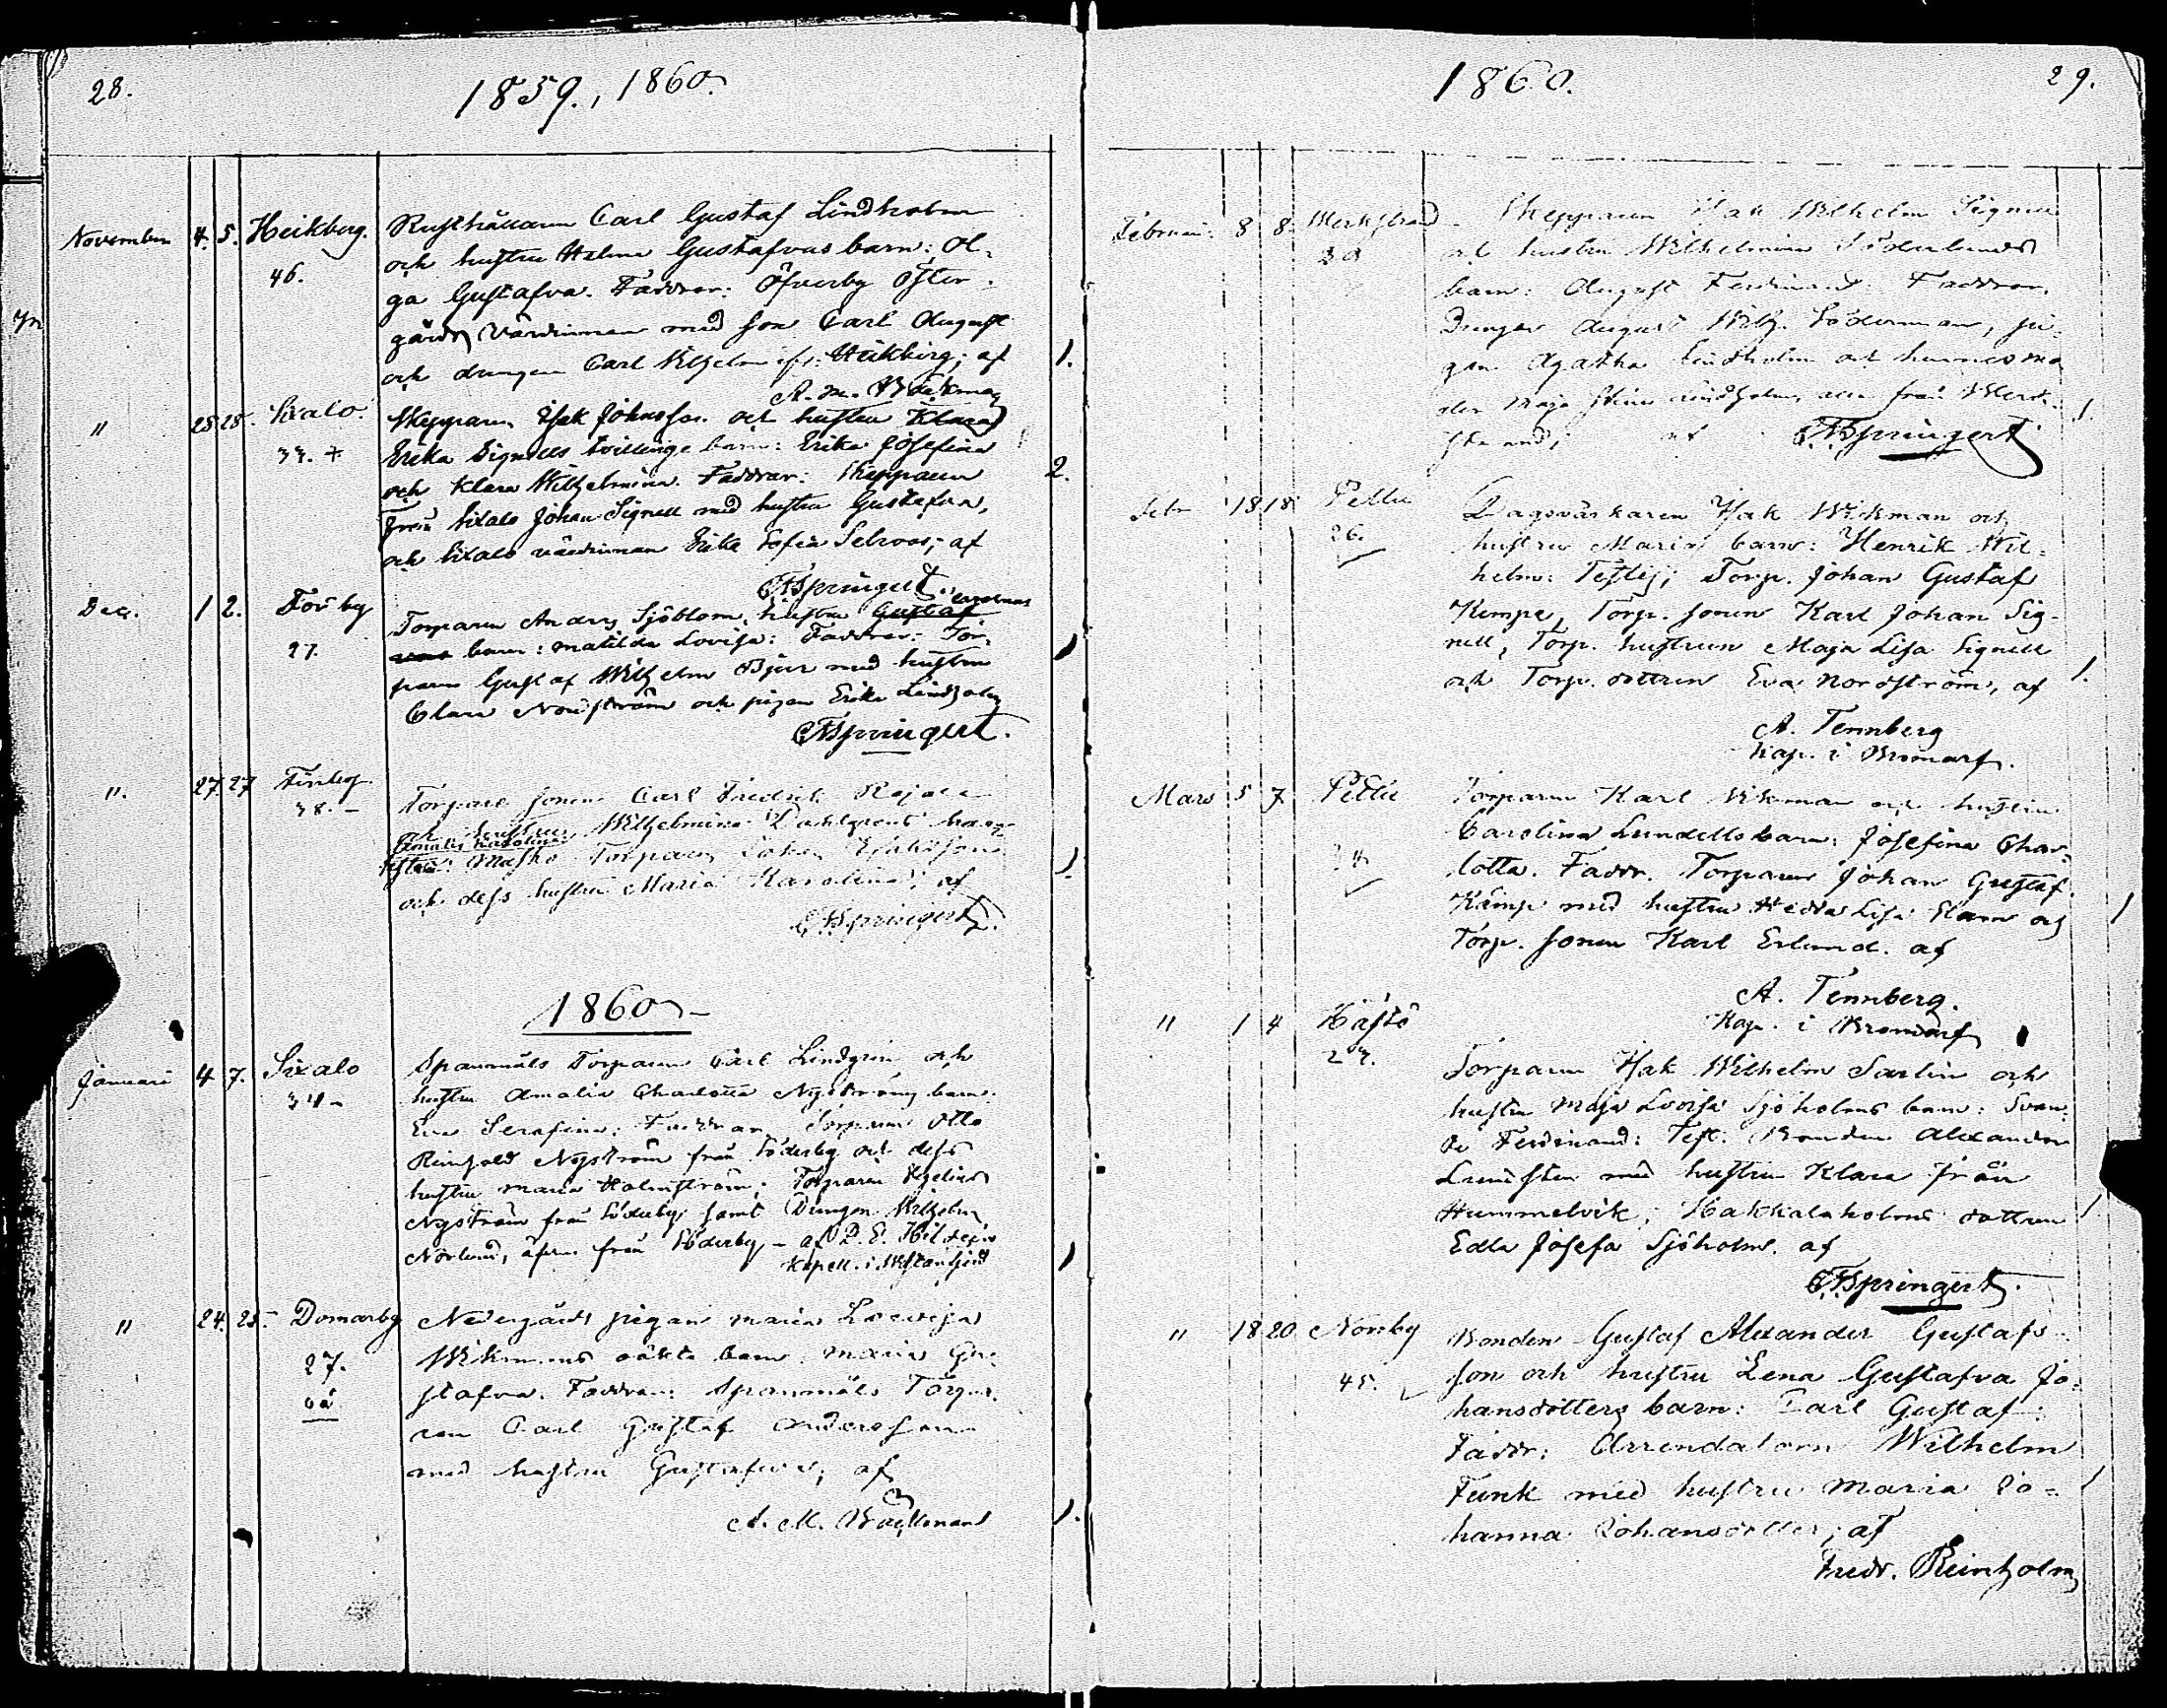 28.
1859., 1860.
November 4. 5. Heikberg. 46.
Rusthållaren Carl Gustaf Lindholm
och hustru Helena Gustafvas barn: Ol-
ga Gustafva. Faddrar: Öfverby Öster-
gårds Värdinnan med son Carl August
och drengen Carl Wilhelm ifr. Heikberg; af 1.
A. M. Bäckman
" 28 28. Sixalo 33. +
Skepparn Isak Johnsson och hustru Klara
Erika Signells tvillinge barn: Erika Josefina
och Klara Wilhelmina. Faddrar: Skepparen 2.
från Sixalo Johan Signell med hustru Gustafva,
och Sixalo värdinnan Erika Sofia Selroos; af
CFSpringert.
Dec. 1 2. Förby 27.
Torparn Anders Sjöblom, hustru Gustaf Carolinas
vas barn: Matilda Lovisa: Faddrar: Tor-
parn Gustaf Wilhelm Bjur med hustru
Clara Nordström och pigan Erika Lindholm
CFSpringert.
". 27. 27 Finby 38. –
Torpare sonen Carl Fredrik
och hustrun Wilhelmina Dahlqvist barn
Amalia Karolina
Torparn Johan
och dess hustru Maria Karolina; af
CFSpringert.
1860 –
Januari 4 7. Sixalo 34 –
Spannmåls Torparn Carl Lindgrén och
hustru Amalia Charlotta Nyströms barn:
Eva Serafina: Faddrar Torparn Otto
Reinhold Nyström från Söderby och dess
hustru Maria Holmström; Torparen
Nyström från Söderby samt Drengen Wilhelm
Norlund, äfven från Söderby – af D. E. Hildén
Kapell. i Westanfjerd
" 24. 25. Domarby 27. oä
Nedergårds pigan Maria Lovisa
Wikmans oäkta barn: Maria Gu-
stafva. Faddrar: Spannmåls Torpa-
ren Carl Gustaf Andersson
med hustru Gustafva; af
A. M. Bäckman 1.
1860. 29.
Februari 8 8. Merkstrand
Skepparen Isak Wilhelm Signell
och hustru Wilhelmina Söderlunds
barn: August Ferdinand: Faddrar,
Drengen August Wilh. Söderman, pi-
gan Agatha Lindholm och hennes mo
der Maja Stina Lindholm, alla från Merk-
strand, af CFSpringert 1.
Febr 18 18 Pettu 26.
Dagsverkaren Isak Wikman och
hustru Marias barn: Henrik Wil-
helm: Testes; Torp. Johan Gustaf
Kempe, Torp. sonen Karl Johan Sig-
nell, Torp. hustrun Maja Lisa Signell
och Torp. dottren Eva Nordström, af 1.
A. Tennberg
Kap. i Bromarf.
Mars 5 7 Pettu
Torparen Karl Wikman och hustru
Carolina Lundells barn: Josefina Char-
lotta. Faddr. Torparen Johan Gustaf
Kämp med hustru Hedda Lisa och
Torp. sonen Karl Erlund. af
A. Tennberg.
Kap. i Bromarf
" 1 4 Håstö
Torparen Isak Wilhelm Sarlin och
hustru Maja Lovisa Sjöholms barn: Svan-
te Ferdinand: Test: Bonden Alexander
Lundsten med hustru Klara från
Hummelvik; Kakkalaholms dottren
Edla Josefa Sjöholm. af
CFSpringert.
" 18 20 Norrby 45.
Bonden Gustaf Alexander Gustafs-
son och hustru Lena Gustafva Jo-
hansdotters barn: Carl Gustaf:
Faddr: Arrendatorn Wilhelm
Funk med hustru Maria Jo-
hanna Johansdotter; af
Fredr. Reinholm